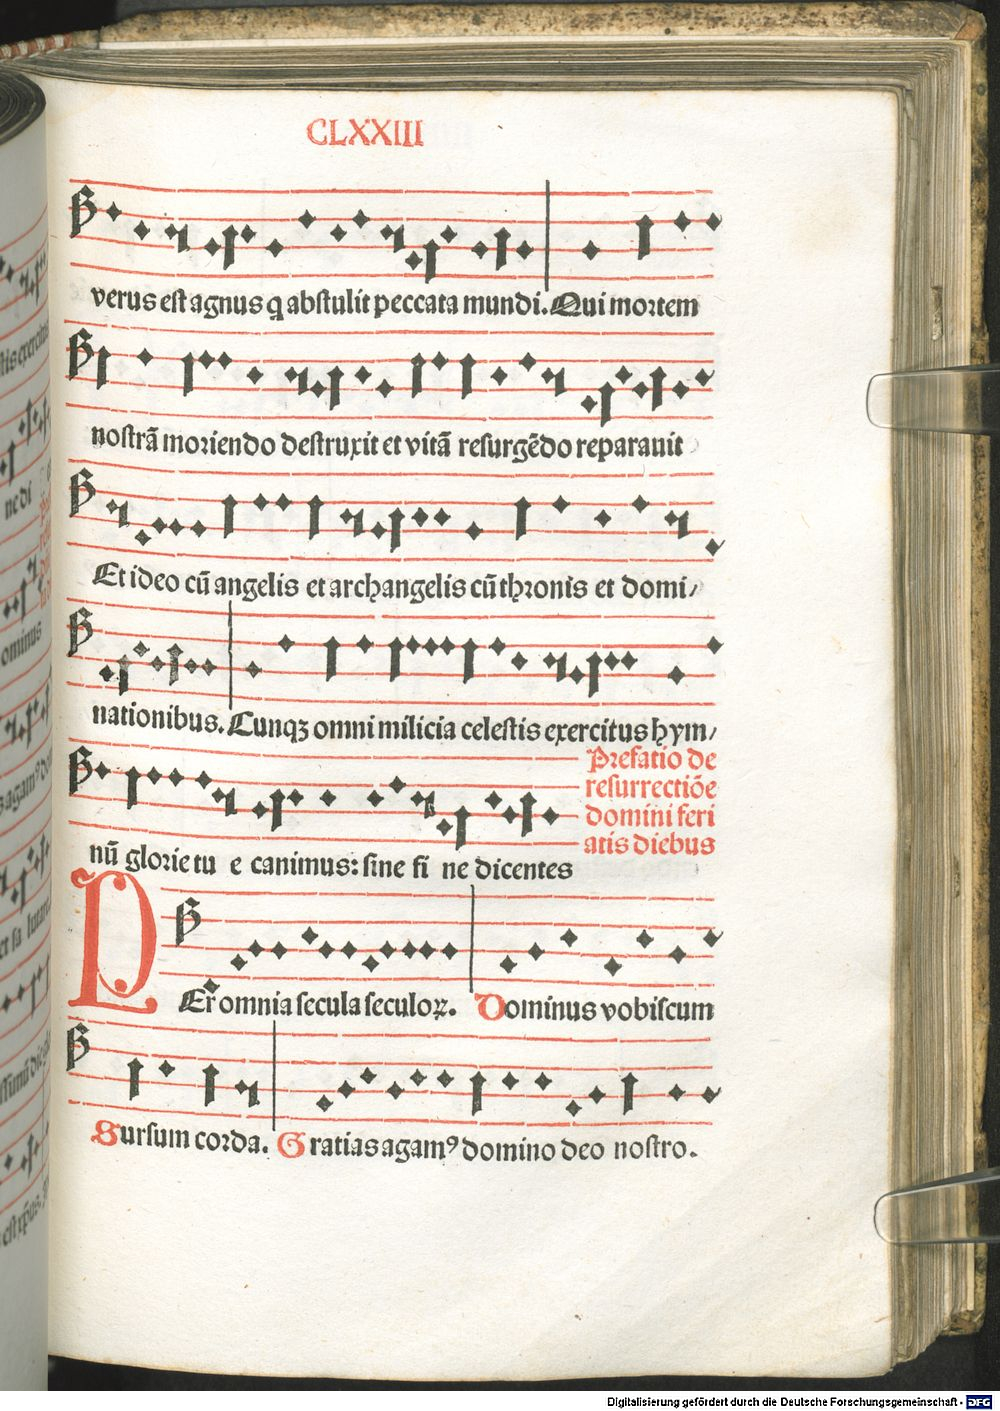 CLXXIII
verus est agnus q̃ abstulit peccata mundi. Qui mortem
nostrã moriendo destruxit et vitã resurgẽdo reparauit
Et ideo cũ angelis et archangelis cũ thronis et domi/
nationibus. Cunqȝ omni milicia celestis exercitus hym/
nũ glorie tu e canimus: sine fi ne dicentes
Prefatio de
resurrectiõe
domini feri
atis diebus
PEr omnia secula seculoꝝ. Dominus vobiscum
Sursum corda. Gratias agamꝰ domino deo nostro.
Digitalisierung gefördert durch die Deutsche Forschungsgemeinschaft - DFG